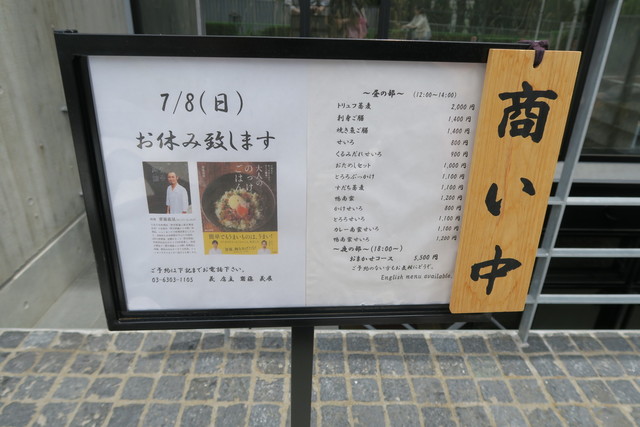 7/8(日)
お休み致します
大人の
のっけ
ごはん
簡単でとうまいものは、うまい!
ご予約は下記までお電話下さい。
03-6303-1105
～昼の部～ (12:00～14:00)
トリュフ蕎麦 2,000円
刺身ご膳 1,400円
焼き魚ご膳 1,400円
せいろ 800円
くるみだれせいろ 900円
おためしセット 1,000円
とろろぶっかけ 1,100円
すだち蕎麦 1,100円
鴨南蛮 1,200円
かけせいろ 800円
とろろせいろ 1,100円
カレー南蛮せいろ 1,100円
鴨南蛮せいろ 1,200円
～夜の部～ (18:00～)
おまかせコース 5,500円
ご予約のない方もお気軽にどうぞ。
English menu available.
商い中